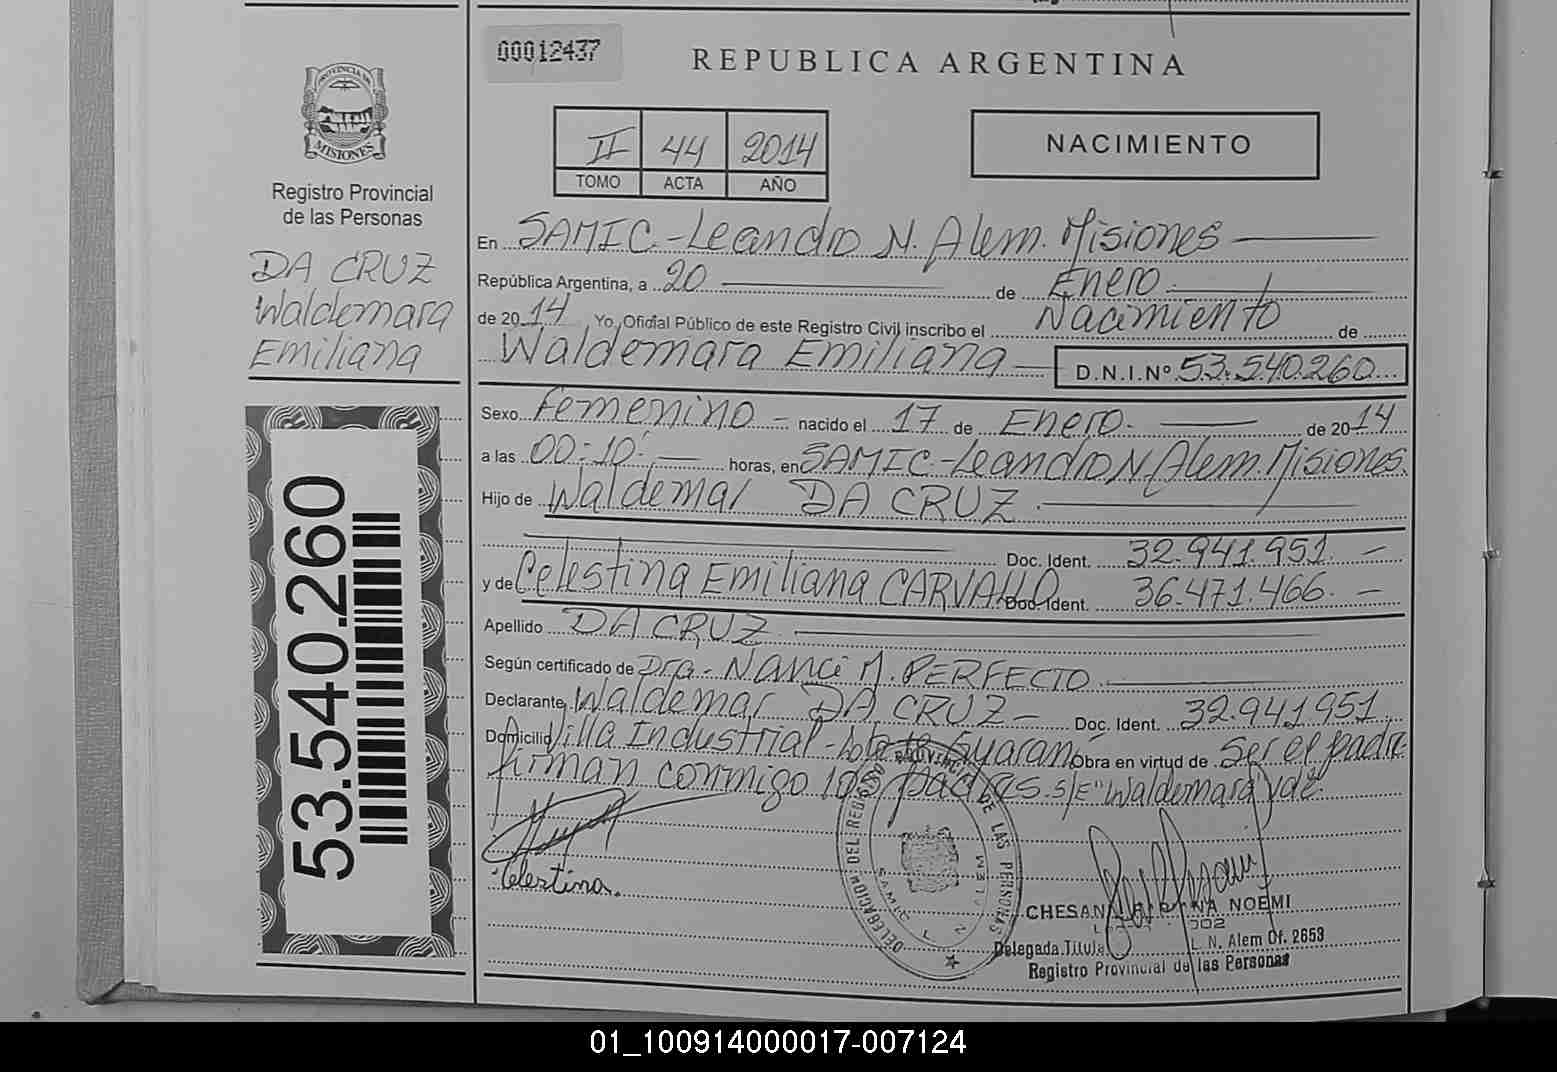 00012437
REPUBLICA ARGENTINA
PROVINCIA DE
MISIONES
Registro Provincial
de las Personas
DA CRUZ
Waldemara
Emiliana
II 44 2014
TOMO ACTA AÑO
NACIMIENTO
En SAMIC.-Leandro N. Alem. Misiones
República Argentina, a 20 de Enero
de 2014 Yo, Oficial Público de este Registro Civil inscribo el Nacimiento de
Waldemara Emiliana D.N.I.Nº 53.540.260
Sexo Femenino - nacido el 17 de Enero. de 2014
a las 00:10 horas, en SAMIC.-Leandro N. Alem. Misiones.
Hijo de Waldemar DA CRUZ
Doc. Ident. 32.941.951. -
y de Celestina Emiliana CARVALLO Doc. Ident. 36.471.466. -
Apellido DA CRUZ
Según certificado de Dra. Nanci M. PERFECTO
Declarante Waldemar DA CRUZ - Doc. Ident. 32.941.951
Domicilio Villa Industrial - Guaraní Obra en virtud de Ser el padre
firman conmigo los padres. s/E "Waldemara" vale
Celestina.
DELEGACION DEL REGISTRO PROVINCIAL DE LAS PERSONAS
SAMIC L. N. ALEM
CHESANI NOEMI
Delegada Titular L. N. Alem Of. 2653
Registro Provincial de las Personas
53.540.260
01_100914000017-007124